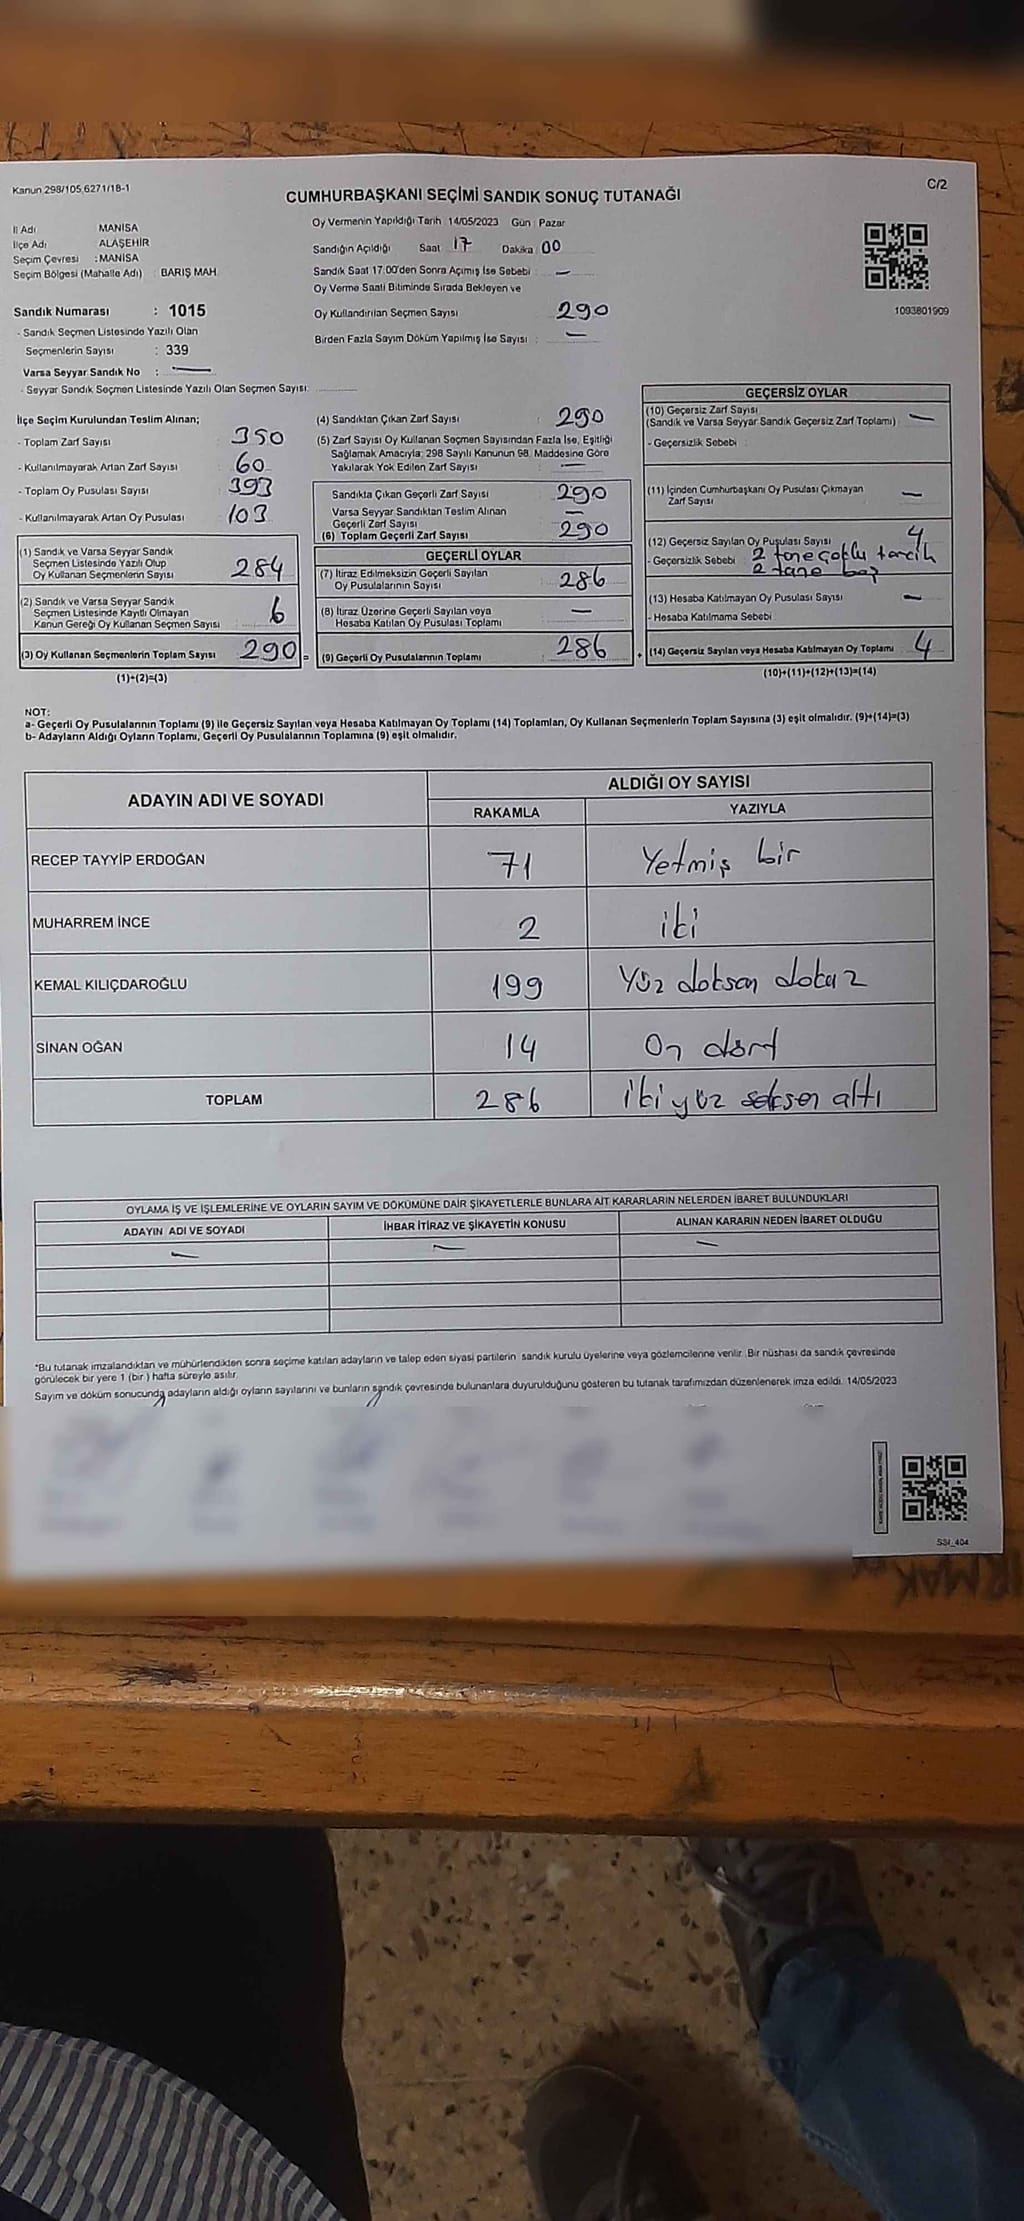 Kanun 298/105,6271/18-1
C/2
CUMHURBAŞKANI SEÇİMİ SANDIK SONUÇ TUTANAĞI
İl Adı MANİSA
İlçe Adı ALAŞEHİR
Seçim Çevresi : MANİSA
Seçim Bölgesi (Mahalle Adı) : BARIŞ MAH.
Oy Vermenin Yapıldığı Tarih 14/05/2023 Gün : Pazar
Sandığın Açıldığı Saat 17 Dakika 00
Sandık Saat 17:00'den Sonra Açımış İse Sebebi : —
Oy Verme Saati Bitiminde Sırada Bekleyen ve
Oy Kullandırılan Seçmen Sayısı 290
Birden Fazla Sayım Döküm Yapılmış İse Sayısı : —
1093801909
Sandık Numarası : 1015
- Sandık Seçmen Listesinde Yazılı Olan
Seçmenlerin Sayısı : 339
Varsa Seyyar Sandık No : —
- Seyyar Sandık Seçmen Listesinde Yazılı Olan Seçmen Sayısı:
İlçe Seçim Kurulundan Teslim Alınan;
- Toplam Zarf Sayısı 350
- Kullanılmayarak Artan Zarf Sayısı 60
- Toplam Oy Pusulası Sayısı 393
- Kullanılmayarak Artan Oy Pusulası 103
(1) Sandık ve Varsa Seyyar Sandık
Seçmen Listesinde Yazılı Olup
Oy Kullanan Seçmenlerin Sayısı 284
(2) Sandık ve Varsa Seyyar Sandık
Seçmen Listesinde Kayıtlı Olmayan
Kanun Gereği Oy Kullanan Seçmen Sayısı 6
(3) Oy Kullanan Seçmenlerin Toplam Sayısı 290 =
(1)+(2)=(3)
(4) Sandıktan Çıkan Zarf Sayısı : 290
(5) Zarf Sayısı Oy Kullanan Seçmen Sayısından Fazla İse, Eşitliği
Sağlamak Amacıyla; 298 Sayılı Kanunun 98. Maddesine Göre
Yakılarak Yok Edilen Zarf Sayısı : —
Sandıkta Çıkan Geçerli Zarf Sayısı 290
Varsa Seyyar Sandıktan Teslim Alınan
Geçerli Zarf Sayısı —
(6) Toplam Geçerli Zarf Sayısı 290
GEÇERLİ OYLAR
(7) İtiraz Edilmeksizin Geçerli Sayılan
Oy Pusulalarının Sayısı 286
(8) İtiraz Üzerine Geçerli Sayılan veya
Hesaba Katılan Oy Pusulası Toplamı —
(9) Geçerli Oy Pusulalarının Toplamı 286 +
GEÇERSİZ OYLAR
(10) Geçersiz Zarf Sayısı
(Sandık ve Varsa Seyyar Sandık Geçersiz Zarf Toplamı) : —
- Geçersizlik Sebebi :
(11) İçinden Cumhurbaşkanı Oy Pusulası Çıkmayan
Zarf Sayısı —
(12) Geçersiz Sayılan Oy Pusulası Sayısı 4
- Geçersizlik Sebebi 2 tane çoklu tercih
2 tane boş
(13) Hesaba Katılmayan Oy Pusulası Sayısı —
- Hesaba Katılmama Sebebi
(14) Geçersiz Sayılan veya Hesaba Katılmayan Oy Toplamı 4
(10)+(11)+(12)+(13)=(14)
NOT:
a- Geçerli Oy Pusulalarının Toplamı (9) ile Geçersiz Sayılan veya Hesaba Katılmayan Oy Toplamı (14) Toplamları, Oy Kullanan Seçmenlerin Toplam Sayısına (3) eşit olmalıdır. (9)+(14)=(3)
b- Adayların Aldığı Oyların Toplamı, Geçerli Oy Pusulalarının Toplamına (9) eşit olmalıdır.
ADAYIN ADI VE SOYADI
ALDIĞI OY SAYISI
RAKAMLA YAZIYLA
RECEP TAYYİP ERDOĞAN 71 Yetmiş bir
MUHARREM İNCE 2 iki
KEMAL KILIÇDAROĞLU 199 Yüz doksan dokuz
SİNAN OĞAN 14 On dört
TOPLAM 286 iki yüz seksen altı
OYLAMA İŞ VE İŞLEMLERİNE VE OYLARIN SAYIM VE DÖKÜMÜNE DAİR ŞİKAYETLERLE BUNLARA AİT KARARLARIN NELERDEN İBARET BULUNDUKLARI
ADAYIN ADI VE SOYADI İHBAR İTİRAZ VE ŞİKAYETİN KONUSU ALINAN KARARIN NEDEN İBARET OLDUĞU
— — —
*Bu tutanak imzalandıktan ve mühürlendikten sonra seçime katılan adayların ve talep eden siyasi partilerin sandık kurulu üyelerine veya gözlemcilerine verilir. Bir nüshası da sandık çevresinde
görülecek bir yere 1 (bir ) hafta süreyle asılır.
Sayım ve döküm sonucunda adayların aldığı oyların sayılarını ve bunların sandık çevresinde bulunanlara duyurulduğunu gösteren bu tutanak tarafımızdan düzenlenerek imza edildi. 14/05/2023
SSI_404